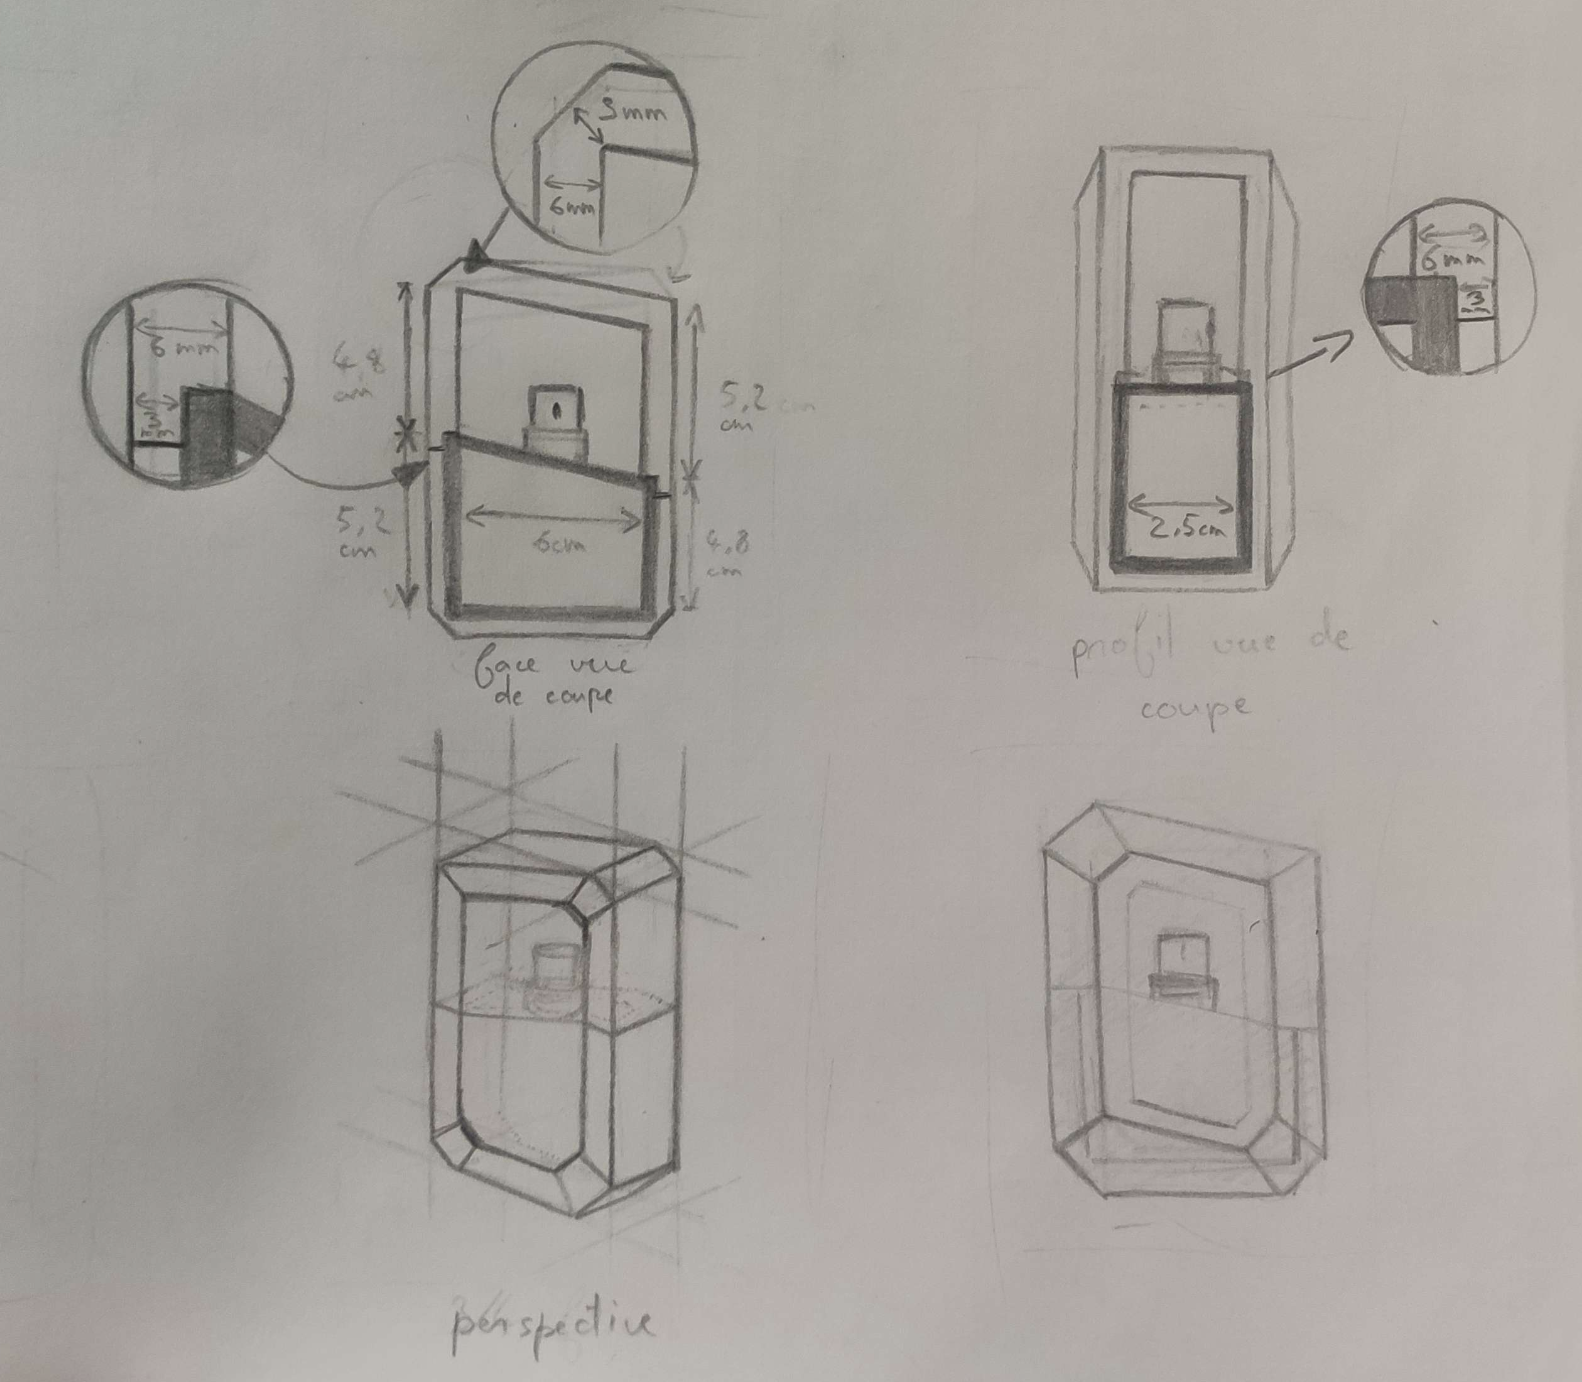 3mm
6mm
6 mm
3
mm
4,8
cm
5,2
cm
5,2
cm
4,8
cm
6cm
face vue
de coupe
6mm
3
mm
2,5cm
profil vue de
coupe
perspective